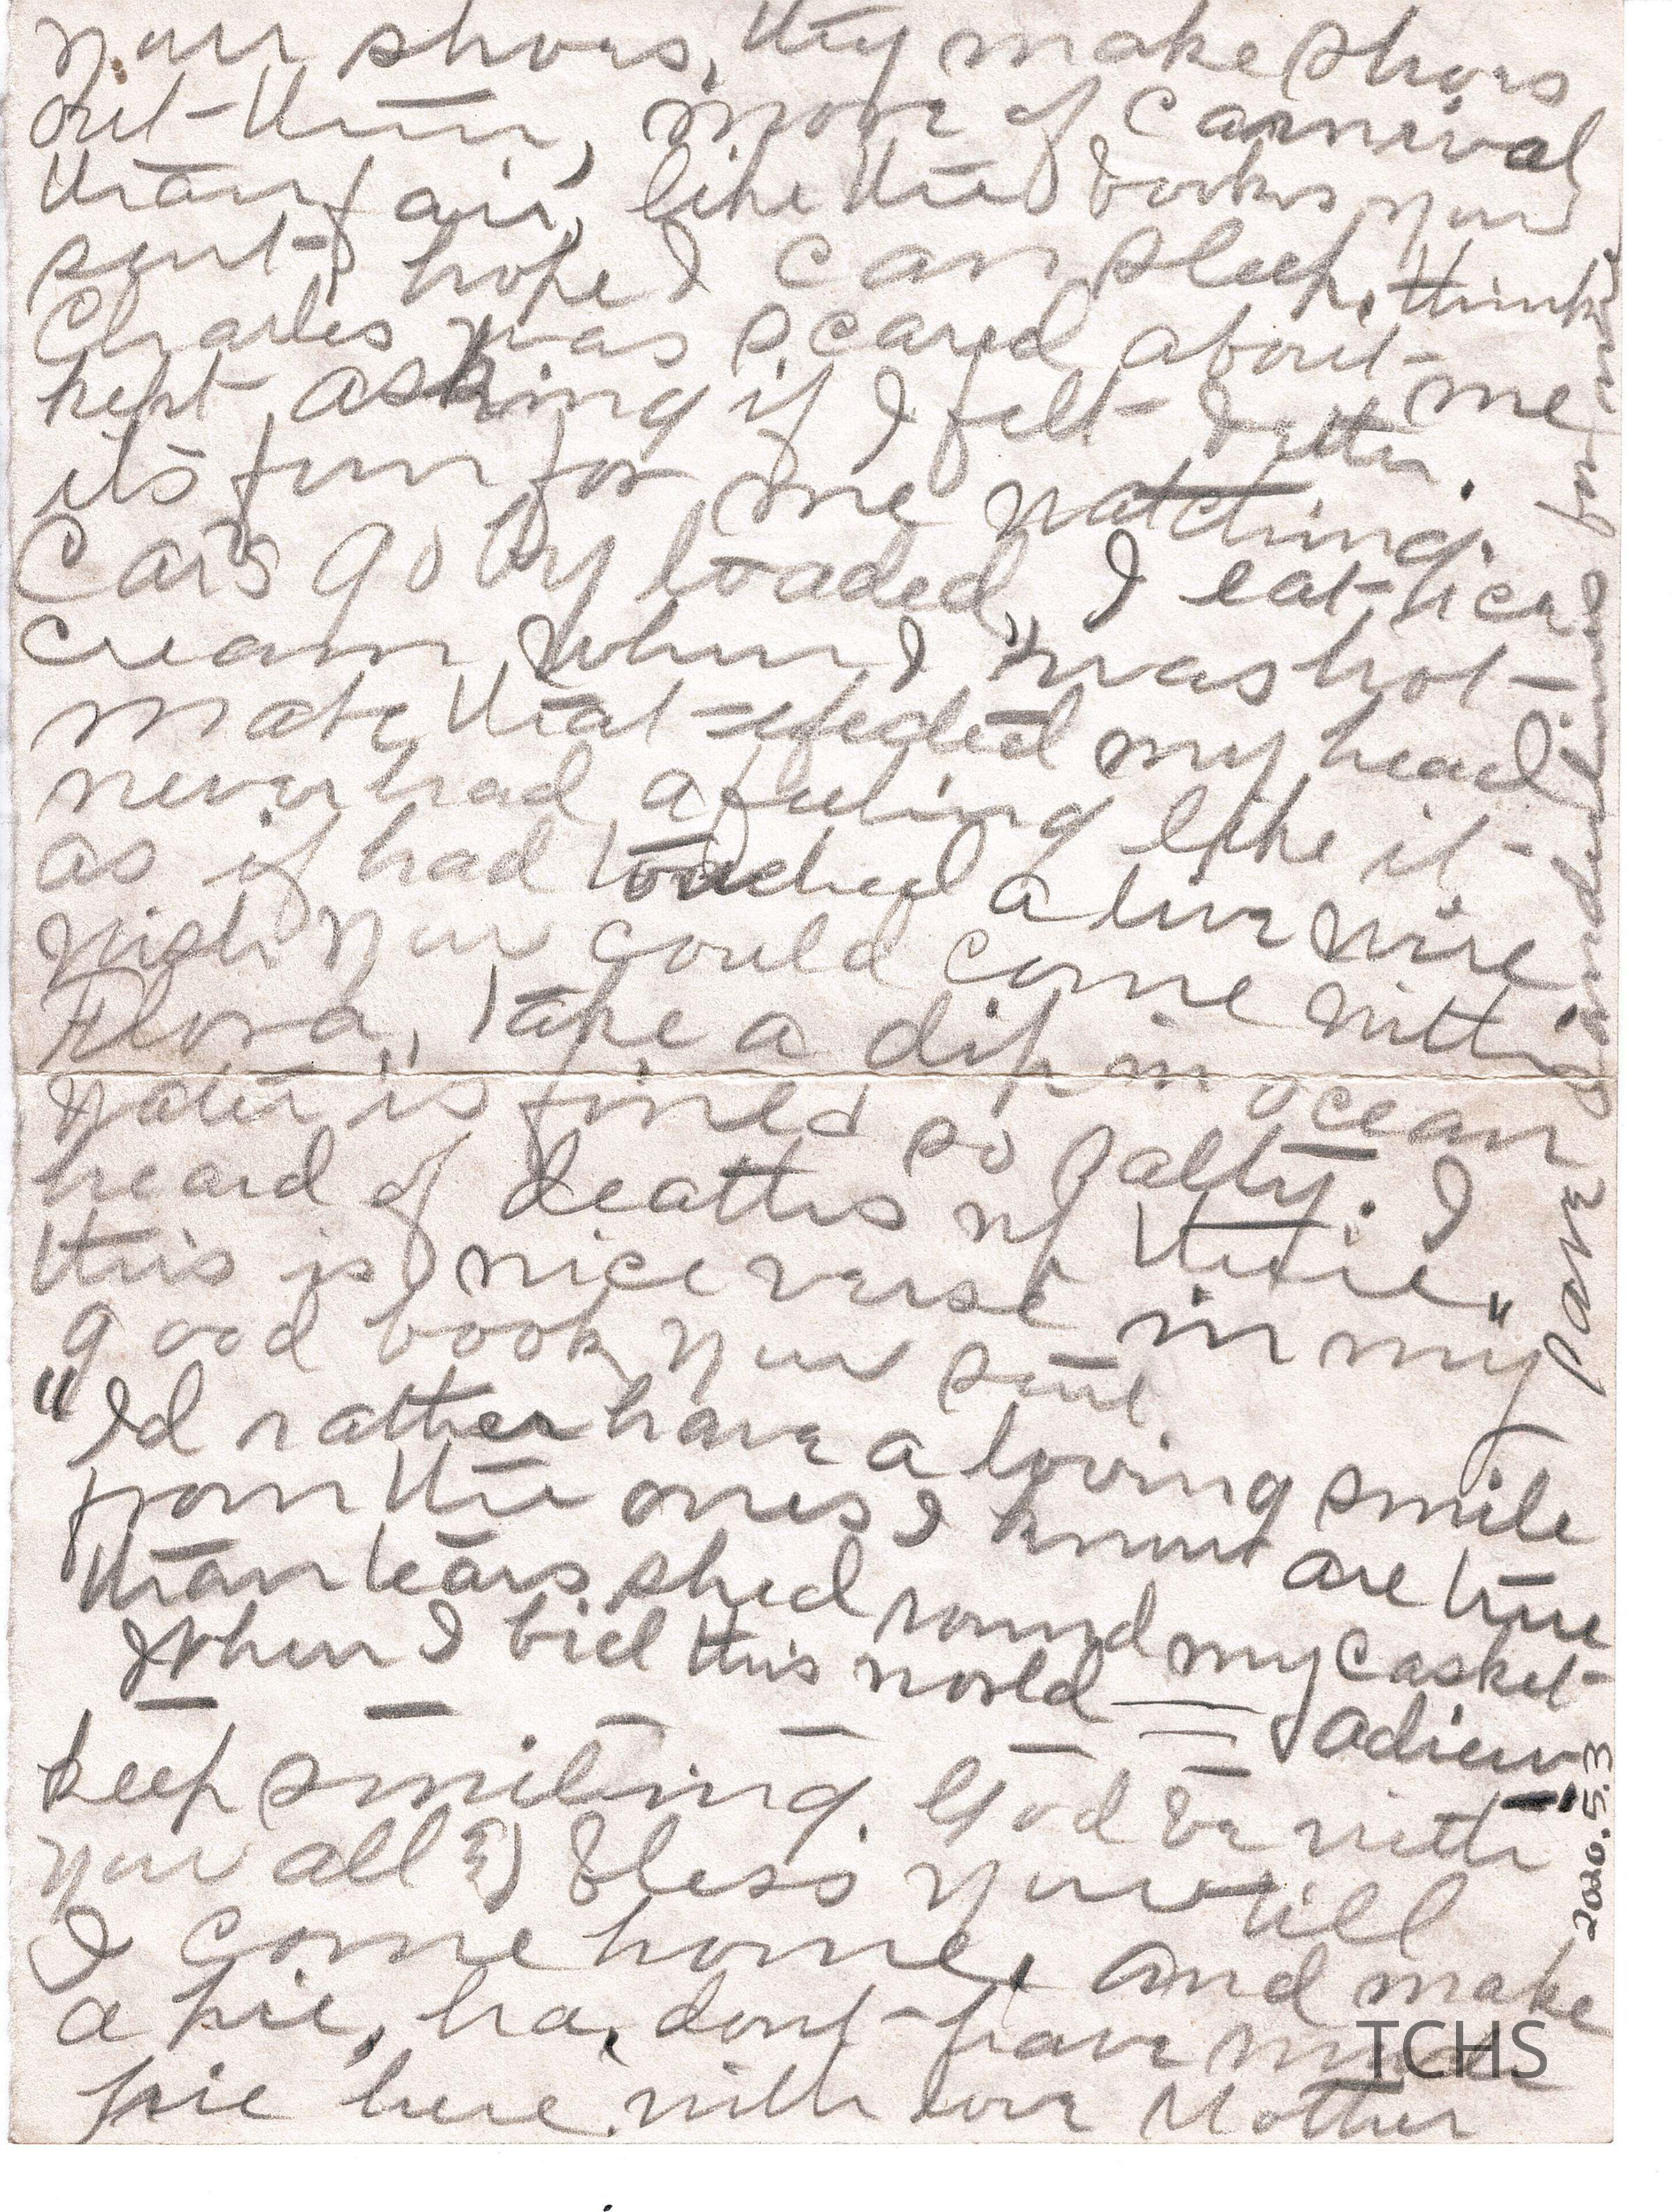 your shoes, they make shoes
out there, more of carnival
than fair, like the books you
sent hope I can sleep, think
Charles was scared about me
kept asking if I felt better.
its fun for me watching
Cars go by loaded, I eat ice
cream when I was hot
mabe that efected my head
never had a feeling like it
as if had touched a live wire
wish you could come with
Flora, take a dip in ocean
water is so salty. I
heard of deaths up there"
this is nice verse in my
good book you sent
"Id rather have a loving smile
from the ones I know are true
than tears shed round my casket
When I bid this world adieu
keep smiling. God be with
you all & bless you till
I come home, and make
a pie, ha, dont have much
pie here. with love Mother
save
2020.5.3
TCHS